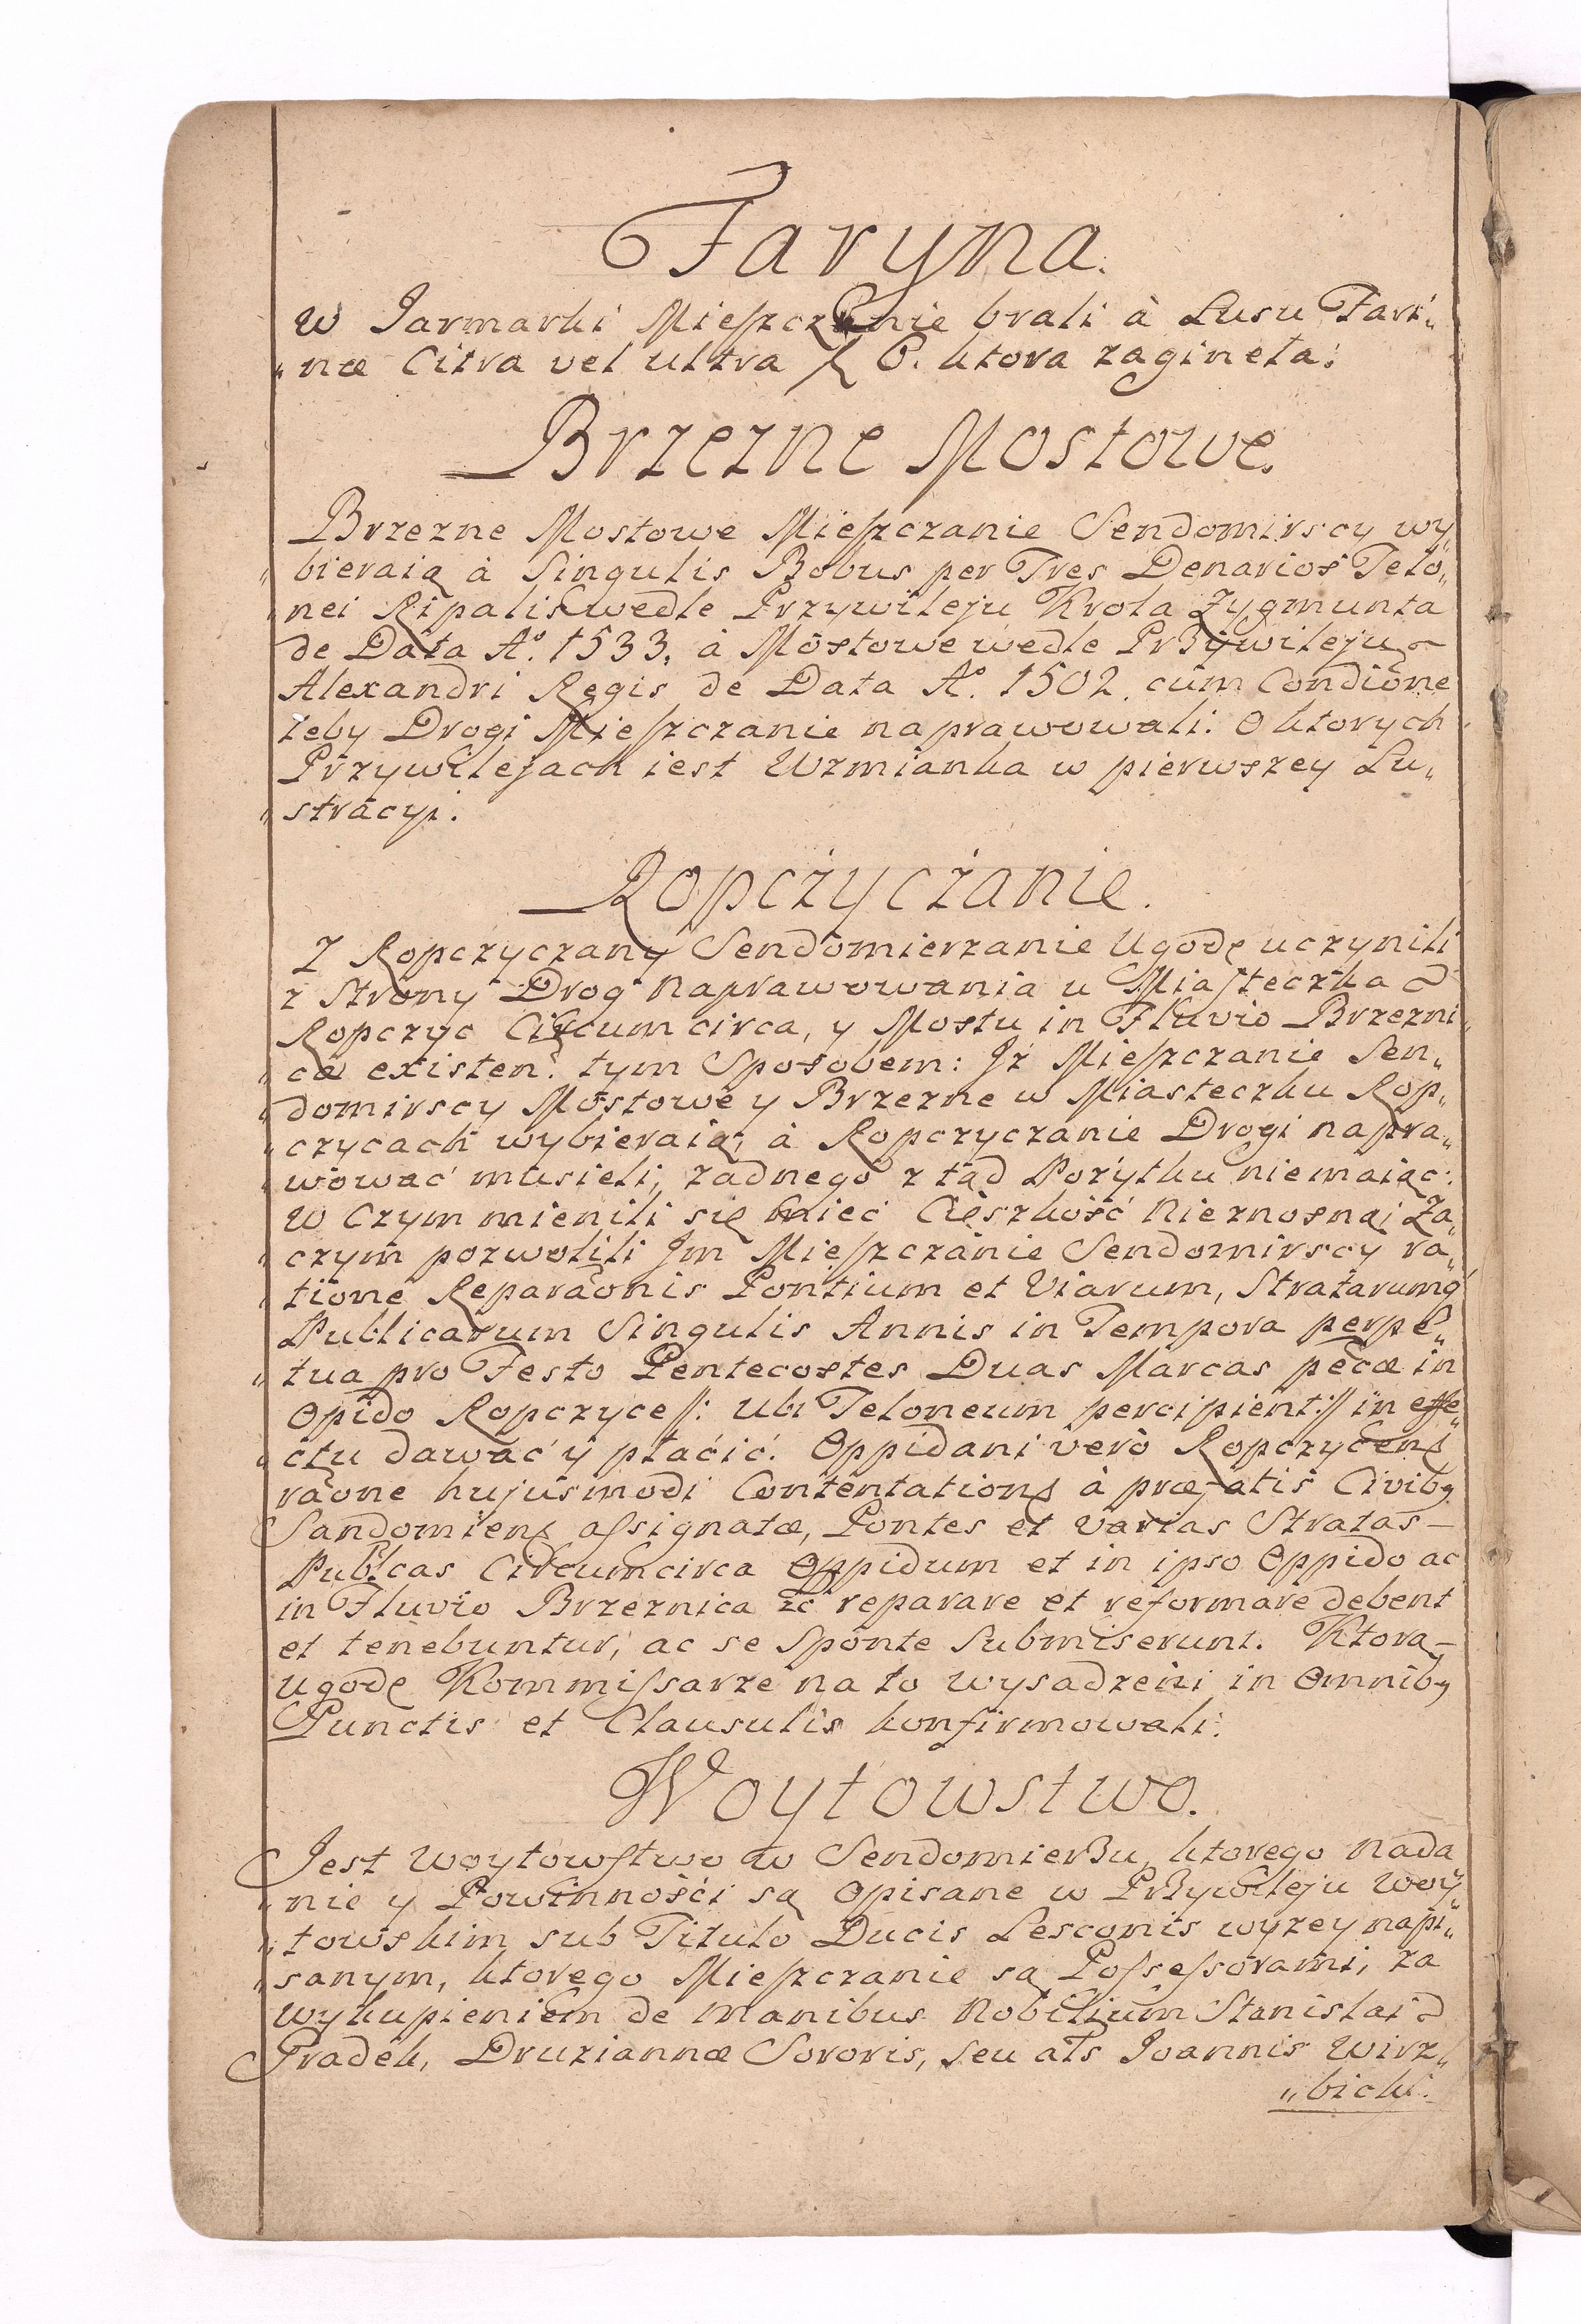 Faryna.
w Jarmarki Mieſzczanie brali à Lusu Fari„
„næ Citra vel ultra ƒ 6. ktora zagineła.
Brzezne Mostowe.
Brzezne Mostowe Mieſzczanie Sendomirscy wy„
„bieraią à Singulis Bobus per Tres Denarios Telo„
„nei Ripalis wedle Przywileju Krola Zygmunta
de Data Aº. 1533. à Mostowe wedle Przywileju
Alexandri Regis de Data Aº. 1502. cum Condiõne
żeby Drogi Mieſzczanie naprawowali. O ktorych
Przywilejach iest Wzmianka w pierwszey Lu„
„stracyi.
Ropczyczanie.
Z Ropczyczany Sendomierzanie Ugodę uczynili
z Strony Drog Naprawowania u Miaſteczka
Ropczyc Circumcirca, y Mostu in Fluvio Brzezni„
„cæ existen: tym Sposobem: Iż Mieſzczanie Sen„
„domirscy Mostowe y Brzezne w Miasteczku Rop„
„czycach wybieraią, à Ropczyczanie Drogi napra„
„wować musieli, żadnego z tąd Pożytku niemaiąc:
w Czym mienili się mieć Cięszkość Nieznosną; Za„
„czym pozwolili Im Mieſzczanie Sendomirscy ra„
„tione Reparãonis Pontium et Viarum, Stratarumq́
Publicarum Singulis Annis in Tempora perpe„
„tua pro Festo Pentecostes Duas Marcas pẽcæ in
Opido Ropczyce //: Ubi Teloneum percipient://  in effe„
„ctu dawać y płaćić. Oppidani verò Ropczycens
rãone hujusmodi Contentations à præfatis Civibq
Sandomiens aſsignatæ, Pontes et varias Stratas
Publcas Circumcirca Oppidum et in ipso Oppido ac
in Fluvio Brzeznica &c reparare et reformare debent
et tenebuntur, ac se Sponte Submiserunt. Ktorą
Ugodę Kommiſsarze na to wysadzeni in Omnibq
Punctis et Clausulis konfirmowali.
Woytowstwo.
Jest Woytowſtwo w Sendomierzu, ktorego Nada
„nie y Powinnośći są Opisane w Przywileju Woy„
„towskim sub Titulo Ducis Lesconis wyżey napi„
„sanym, ktorego Mieſzczanie są Poſseſsorami, za
Wykupieniem de Manibus Nobilium Stanislai
Pradek, Druziannæ Sororis, seu ałs Joannis Wirz„
„bicki.